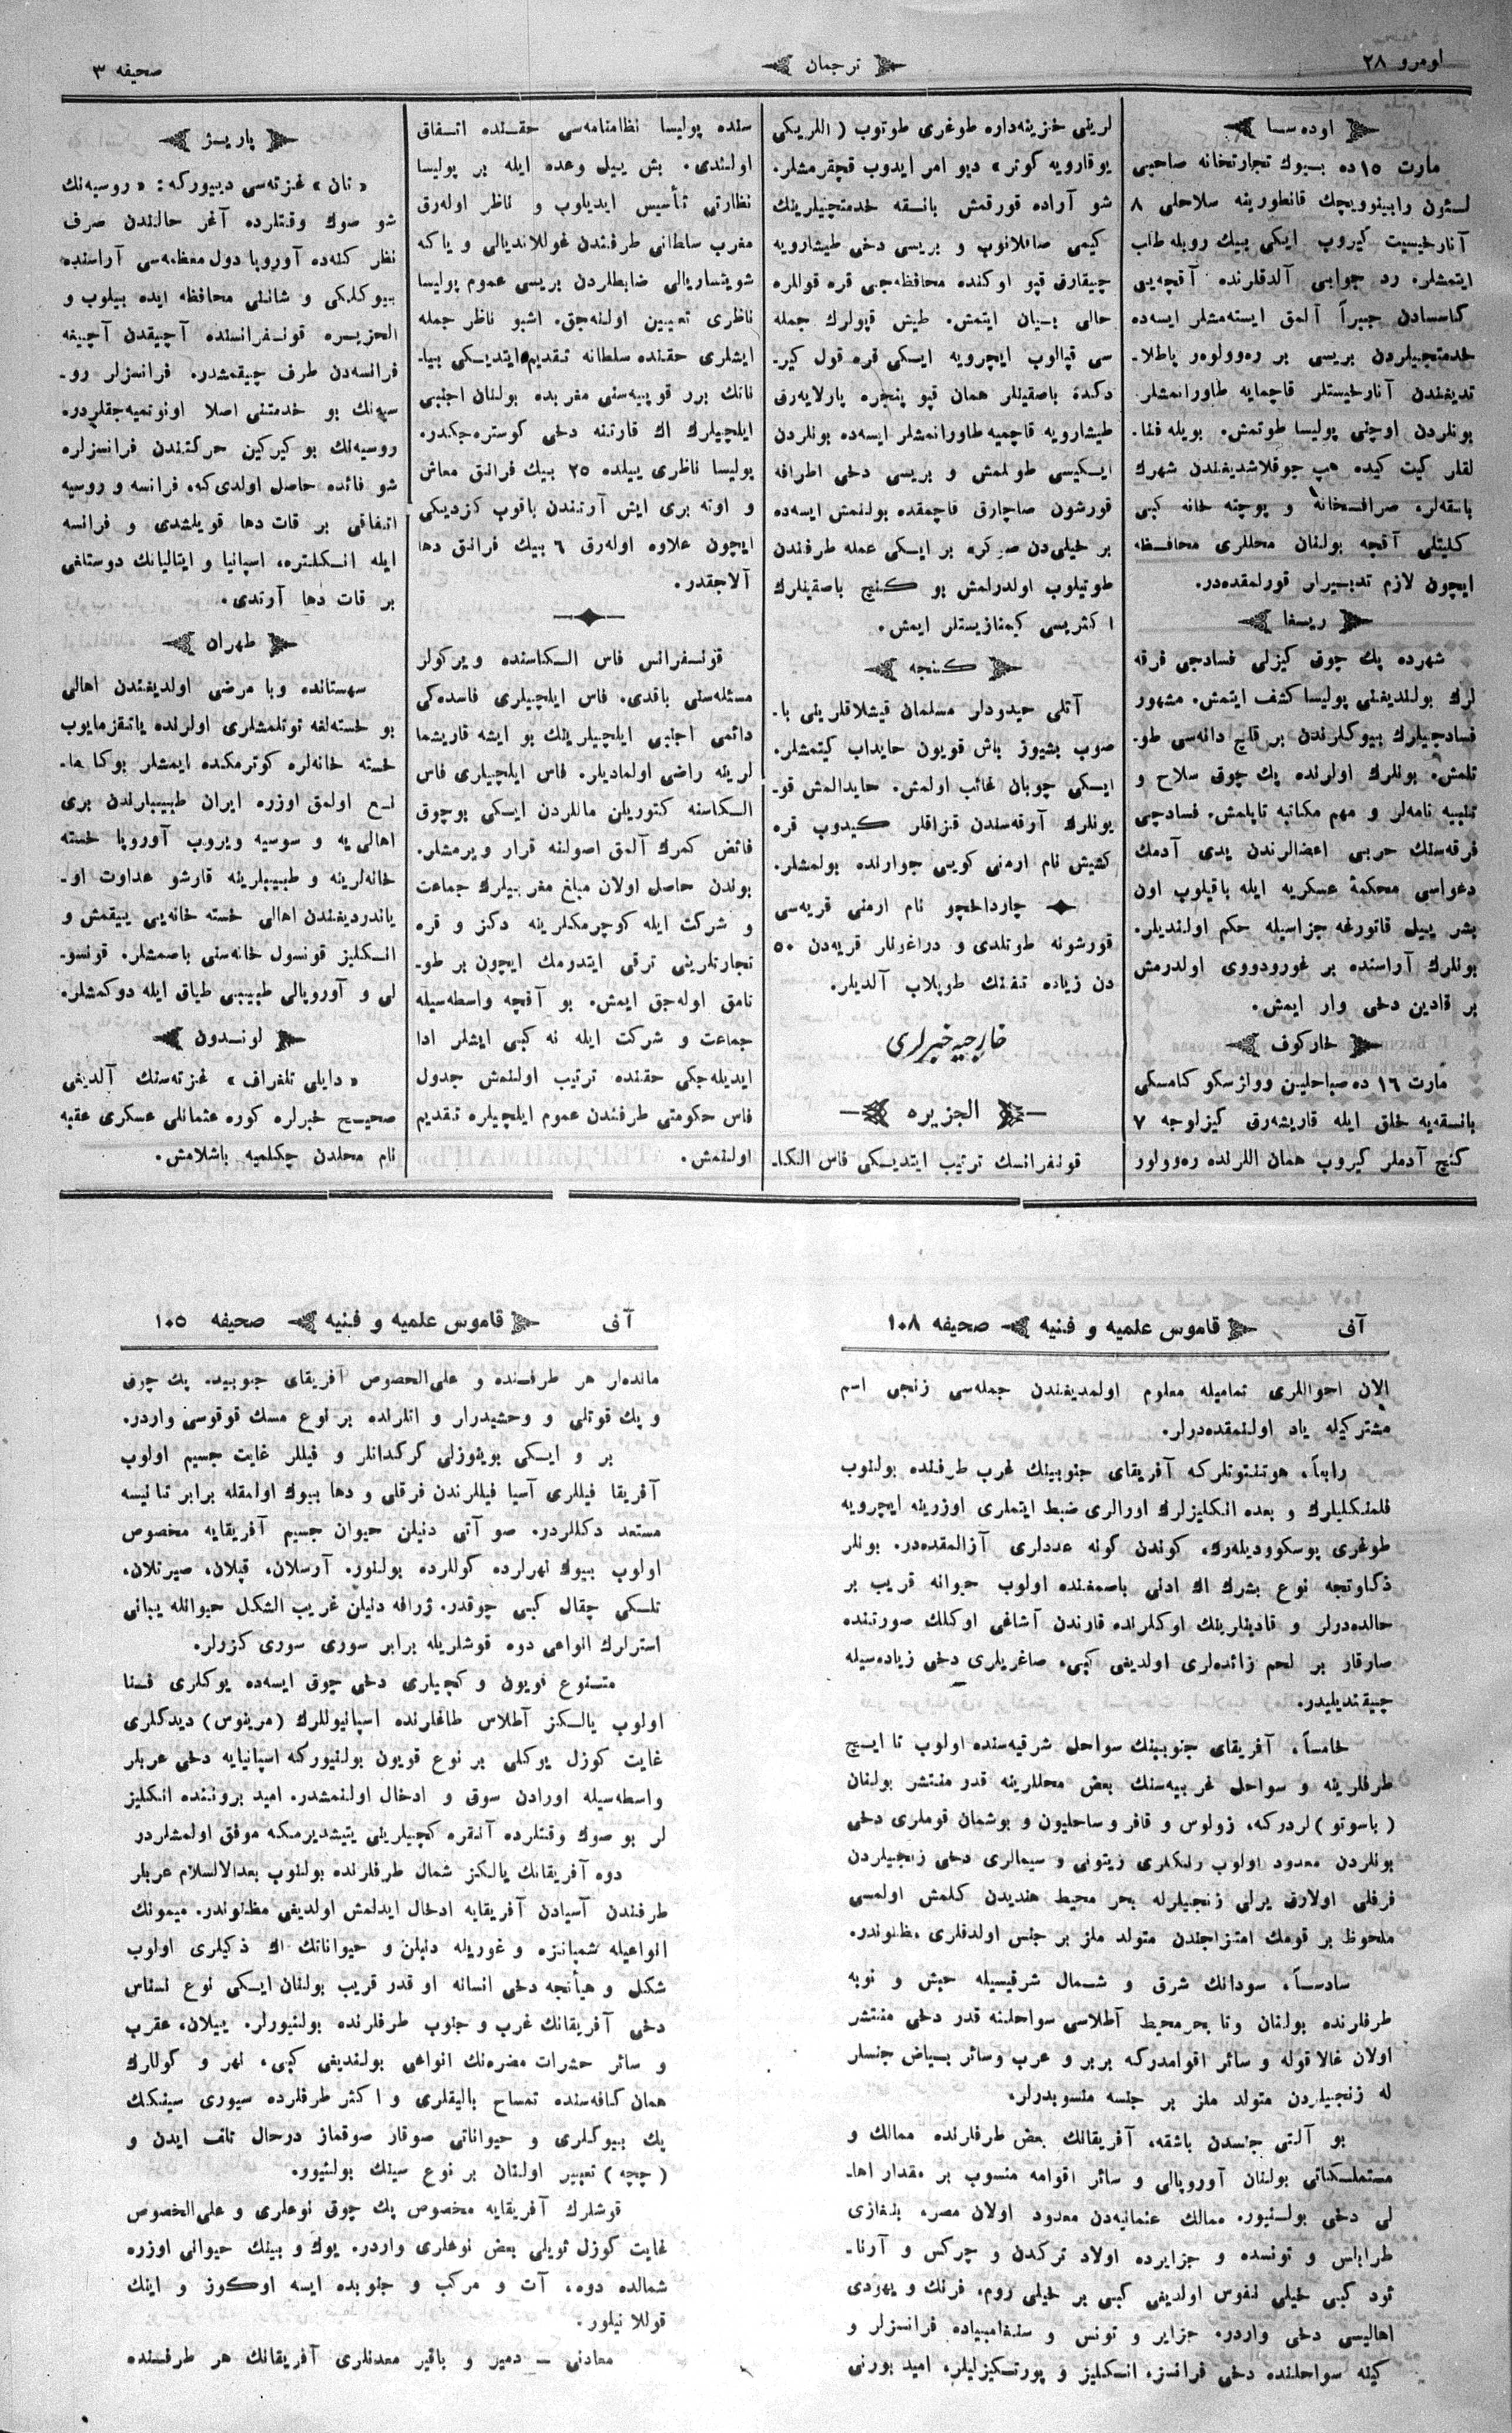 اومرو ٢٨
ترجمان
صحیفه ٣
اوده‌سا
مارت ١٥ ده بیوك تجارتخانه صاحبی
لئون رابینوویچك قانطورینه سلاحلی ٨
آنارخیسیت كیروب ایكی بیك روبله طلب
ایتمشلر. رد جوابی آلدقلرنده آقچه‌یی
كاسسادن جبیراً آلمق ایسته‌مشلر ایسه‌ده
خدمتجیلردن بریسی بر ره‌وولوەر پاطلا-
تدیغندن آنارخیستلر قاچمایه طاورانمشلر.
بونلردن اوچنی پولیسا طوتمش. بویله فنا-
لقلر كیت كیده هپ جوقلاشدیغندن شهرك
باسقه‌لر، صرافخانه و پوچته خانه كبی
كلیتلی آقچه بولنان محللری محافظه
ایچون لازم تدبیرلر قورلمقده‌در.
ریغا
شهرده پك چوق كیزلی فسادجی فرقه
لرك بولندیغنی پولیسا كشف ایتمش. مشهور
فسادجیلرك بیوكلرندن بر قاچ دانه‌سی طو-
تلمش. بونلرك اولرنده پك چوق سلاح و
تنبیه نامه‌لر و مهم مكاتبه تاپلمش. فسادچی
فرقه‌سنك حربی اعضالرندن یدی آدمك
دعواسی محكمۀ عسكریه ایله باقیلوب اون
بشر ییل قاتورغه جزاسیله حكم اولندیلر.
بونلرك آراسنده بر غورودووی اولدرمش
بر قادین دخی وار ایمش.
خاركوف
مارت ١٦ ده صباحلین وولژسكو كامسكی
بانسقه‌یه خلق ایله قاریشه‌رق كیزلوجه ٧
كنچ آدملر كیروب همان اللرنده ره‌وولور
لرینی خزینه‌داره طوغری طوتوب (اللریكی
یوقارویه كوتر» دیو امر ایدوب قچقرمشلر.
شو آراده قورقمش بانسقه خدمتچیلرینك
كیمی صاقلانوب و بریسی دخی طیشارویه
چیقارق قپو اوكنده محافظه‌جی قره قوللره
حالی بیان ایتمش. طیش قپولرك جمله
سی قپالوب ایچرویه ایسكی قره قول كیر-
دكده باصقینلر همان قپو پنجره پارلایه‌رق
طیشارویه قاچمیه طاورانمشلر ایسه‌ده بونلردن
ایسكیسی طولمش و بریسی دخی اطرافه
قورشون صاچارق قاچمقده بولنمش ایسه‌ده
بر خیلی‌دن صوكره بر ایسكی عمله طرفندن
طوتیلوب اولدرلمش بو كنچ باصقینلرك
اكثریسی كیمنازیستلر ایمش.
كنجه
آتلی حیدودلر مسلمان قیشلاقلرینی با-
صوب بشیوز باش قویون حایداب كیتمشلر.
ایسكی چوبان غائب اولمش. حایدالمش قو-
یونلرك آرقه‌سندن قزاقلر كیدوپ قره
كشیش نام ارمنی كویی جوارلنده بولمشلر.
چارداخچو نام ارمنی قریه‌سی
قورشونه طوتلدی و دراغونلر قریه‌دن ٥٠
دن زیاده تفنك طوپلاب آلدیلر.
خارجیه خبرلری
الجزیره
قونفرانسك ترتیب ایتدیسكی فاس النكا-
سنده پولیسا نظامنامه‌سی حقنده اتفاق
اولندی. بش ییل وعده ایله بر پولیسا
نظارتی تأسیس ایدیلوب و ناظر اوله‌رق
مغرب سلطانی طرفندن غوللاندیالی و یاكه
شویتساریالی ضابطلردن بریسی عموم پولیسا
ناظری تعیین اولنه‌جق. اشبو ناظر جمله
ایشلری حقنده سلطانه تقدیم ایتدیسكی بیا-
نانك برر قوپیه‌سنی مغربده بولنان اجنبی
ایلچیلرك اك قارتنه دخی كوستره‌جكدر.
پولیسا ناظری ییلده ٢٥ بیك فرانق معاش
و اوته بری ایش آرتندن باقوب كزدیكی
ایچون علاوه اوله‌رق ٦ بیك فرانق دها
آلاجقدر.
قونفرانس فاس الكاسنده ویركولر
مسئله‌سنی باقدی. فاس ایلچیلری فاسده‌كی
دائمی اجنبی ایلچیلرینك بو ایشه قاریشما
لرینه راضی اولمادیلر. فاس ایلچیلری فاس
الكاسنه كتوریلن ماللردن ایسكی بوچوق
فائض كمرك آلمق اصولنه قرار ویرمشلر.
بوندن حاصل اولان مبلغ مغربیلرك جماعت
و شركت ایله كوچرمكلرینه دكز و قره
تجارتلرینی ترقی ایتدرمك ایچون بر طو-
تامق اوله‌جق ایمش. بو آقچه واسطه‌سیله
جماعت و شركت ایله نه كبی ایشلر ادا
ایدیله‌جكی حقنده ترتیب اولنمش جدول
فاس حكومتی طرفندن عموم ایلچیلره تقدیم
اولنمش.
پاریژ
«تان» غزته‌سی دییوركه: «روسیه‌نك
شو صوك وقتلرده آغر حالندن صرف
نظر كنه‌ده آوروپا دول معظمه‌سی آراسنده
بیوكلكی و شاننی محافظه ایده بیلوب و
الجزیره قونفرانسنده آچیقدن آچیغه
فرانسه‌دن طرف چیقمشدر. فرانسزلر رو-
سیه‌نك بو خدمتنی اصلا اونوتمیه‌جقلردر.
روسیه‌نك بو كیركین حركتندن فرانسزلره
شو فائده حاصل اولدی‌كه، فرانسه و روسیه
اتفاقی بر قات دها قویلشدی و فرانسه
ایله انكلتره، اسپانیا و ایتالیانك دوستلغی
بر قات دها آرتدی.
طهران
سهستانده وبا مرضی اولدیغندن اهالی
بو خسته‌لغه توتلمشلری اولرنده یاتقزمایوب
خسته خانه‌لره كوترمكده ایمشلر بوكا ما-
نع اولمق اوزره ایران طبیبلرندن بری
اهالی‌یه و سوسیه ویروب آوروپا خسته
خانه‌لرینه و طبیبلرینه قارشو عداوت او-
یاندردیغندن اهالی خسته خانه‌یی ییقمش و
انكلیز قونسول خانه‌سنی باصمشلر. قونسو-
لی و آوروپالی طبیبی طیاق ایله دوكمشلر.
لوندون
«دایلی تلغراف» غزته‌سنك آلدیغی
صحیح خبرلره كوره عثمانلی عسكری عقبه
نام محلدن چكلمیه باشلامش.
آف
قاموس علمیه و فنیه
صحیفه ١٠٨
الان احواللری تمامیله معلوم اولمدیغندن جمله‌سی زنجی اسم
مشتركیله یاد اولنمقده‌درلر.
رابعاً، هوتنتوتلركه آفریقای جنوبینك غرب طرفنده بولنوب
فلمنكلیلرك و بعده انكلیزلرك اورالری ضبط ایتملری اوزرینه ایچرویه
طوغری پوسكوودیله‌رك، كوندن كونه عددلری آزالمقده‌در. بونلر
ذكاوتجه نوع بشرك اك ادنی باصمغنده اولوب حیوانه قریب بر
حالده‌درلر و قادینلرینك اوكلرنده قارندن آشاغی اوكلك صورتنده
صارقار بر لحم زائده‌لری اولدیغی كبی، صاغریلری دخی زیاده‌سیله
چیقندیلیدر.
خامساً، آفریقای جنوبینك سواحل شرقیه‌سنده اولوب تا ایچ
طرفلرینه و سواحل غربیه‌سنك بعض محللرینه قدر منتشر بولنان
(باسوتو) لردركه، زولوس و قافر و ساحلیون و بوشمان قوملری دخی
بونلردن معدود اولوب رنكلری زیتونی و سیمالری دخی زنجیلردن
فرقلی اولارق یرلی زنجیلرله بحر محیط هندیدن كلمش اولمسی
ملحوظ بر قومك امتزاجندن متولد ملز بر جنس اولدقلری مظنوندر.
سادساً، سودانك شرق و شمال شرقیسیله حبش و نوبه
طرفلرنده بولنان وتا بحرمحیط آطلاسی سواحلنه قدر دخی منتشر
اولان غالا قوله و سائر اقوامدركه بربر و عرب وسائر بیاض جنسلر
له زنجیلردن متولد ملز بر جنسه منسوبدرلر.
بو آلتی جنسدن باشقه، آفریقانك بعض طرفلرنده ممالك و
مستملكاتی بولنان آوروپالی و سائر اقوامه منسوب بر مقدار اها-
لی دخی بولنیور. ممالك عثمانیه‌دن معدود اولان مصر، بنغازی
طرابلس و تونسده و جزایرده اولاد تركدن و چركس و آرنا-
ئود كبی خیلی نفوس اولدیغی كبی بر خیلی روم، فرنك و یهودی
اهالیسی دخی واردر. جزایر و تونس و سنغامبیاده فرانسزلر و
كینه سواحلنده دخی فرانسز، انكلیز و پورتكیزلیلر، امید بورنی
آف
قاموس علمیه و فنیه
صحیفه ١٠٥
مانده‌لر هر طرفنده و علی‌الخصوص آفریقای جنوبیده. پك چوق
و پك قوتلی و وحشیدرلر و اتلرنده بر نوع مسك قوقوسی واردر.
بر و ایكی بوینوزلی كركدانلر و فیللر غایت جسیم اولوب
آفریقا فیللری آسیا فیللرندن فرقلی و دها بیوك اولمقله برابر تانیسه
مستعد دكللردر. صو آتی دنیلن حیوان جسیم آفریقایه مخصوص
اولوب بیوك نهرلرده كوللرده بولنور. آرسلان، قپلان، صیرتلان،
تلكی چقال كبی چوقدر. ژرافه دنیلن غریب الشكل حیوانله یبانی
استرلرك انواعی دوه قوشلریله برابر سوری سوری كزرلر.
متنوع قویون و كچیلری دخی چوق ایسه‌ده یوكلری فنا
اولوب یالكز آطلاس طاغلرنده اسپانیوللرك (مرینوس) دیدكلری
غایت كوزل یوكلی بر نوع قویون بولنیوركه اسپانیایه دخی عربلر
واسطه‌سیله اورادن سوق و ادخال اولنمشدر. امید بروننده انكلیز
لر بو صوك وقتلرده آنقره كچیلرینی یتیشدیرمكه موفق اولمشلردر
دوه آفریقانك یالكز شمال طرفلرنده بولنوب بعدالاسلام عربلر
طرفندن آسیادن آفریقایه ادخال ایدلمش اولدیغی مظنوندر. میمونك
انواعیله شمپانزه و غوریله دنیلن و حیواناتك اك ذكیلری اولوب
شكل و هیأتجه دخی انسانه او قدر قریب بولنان ایكی نوع نسناس
دخی آفریقانك غرب و جنوب طرفلرنده بولنیورلر. ییلان، عقرب
و سائر حشرات مضره‌نك انواعی بولندیغی كبی، نهر و كوللرك
همان كافه‌سنده تمساح بالیقلری و اكثر طرفلرده سیوری سینكك
پك بیوكلری و حیواناتی صوقار صوقماز درحال تلف ایدن و
(چچه) تعبیر اولنان بر نوع سینك بولنیوو.
قوشلرك آفریقایه مخصوص پك چوق نوعلری و علی‌الخصوص
غایت كوزل تویلی بعض نوعلری واردر. یوك و بینك حیوانی اوزره
شمالده دوه، آت و مركب و جنوبده ایسه اوكوز و اینك
قوللانیلور.
معادنی ـ دمیر و باقیر معدنلری آفریقانك هر طرفنده